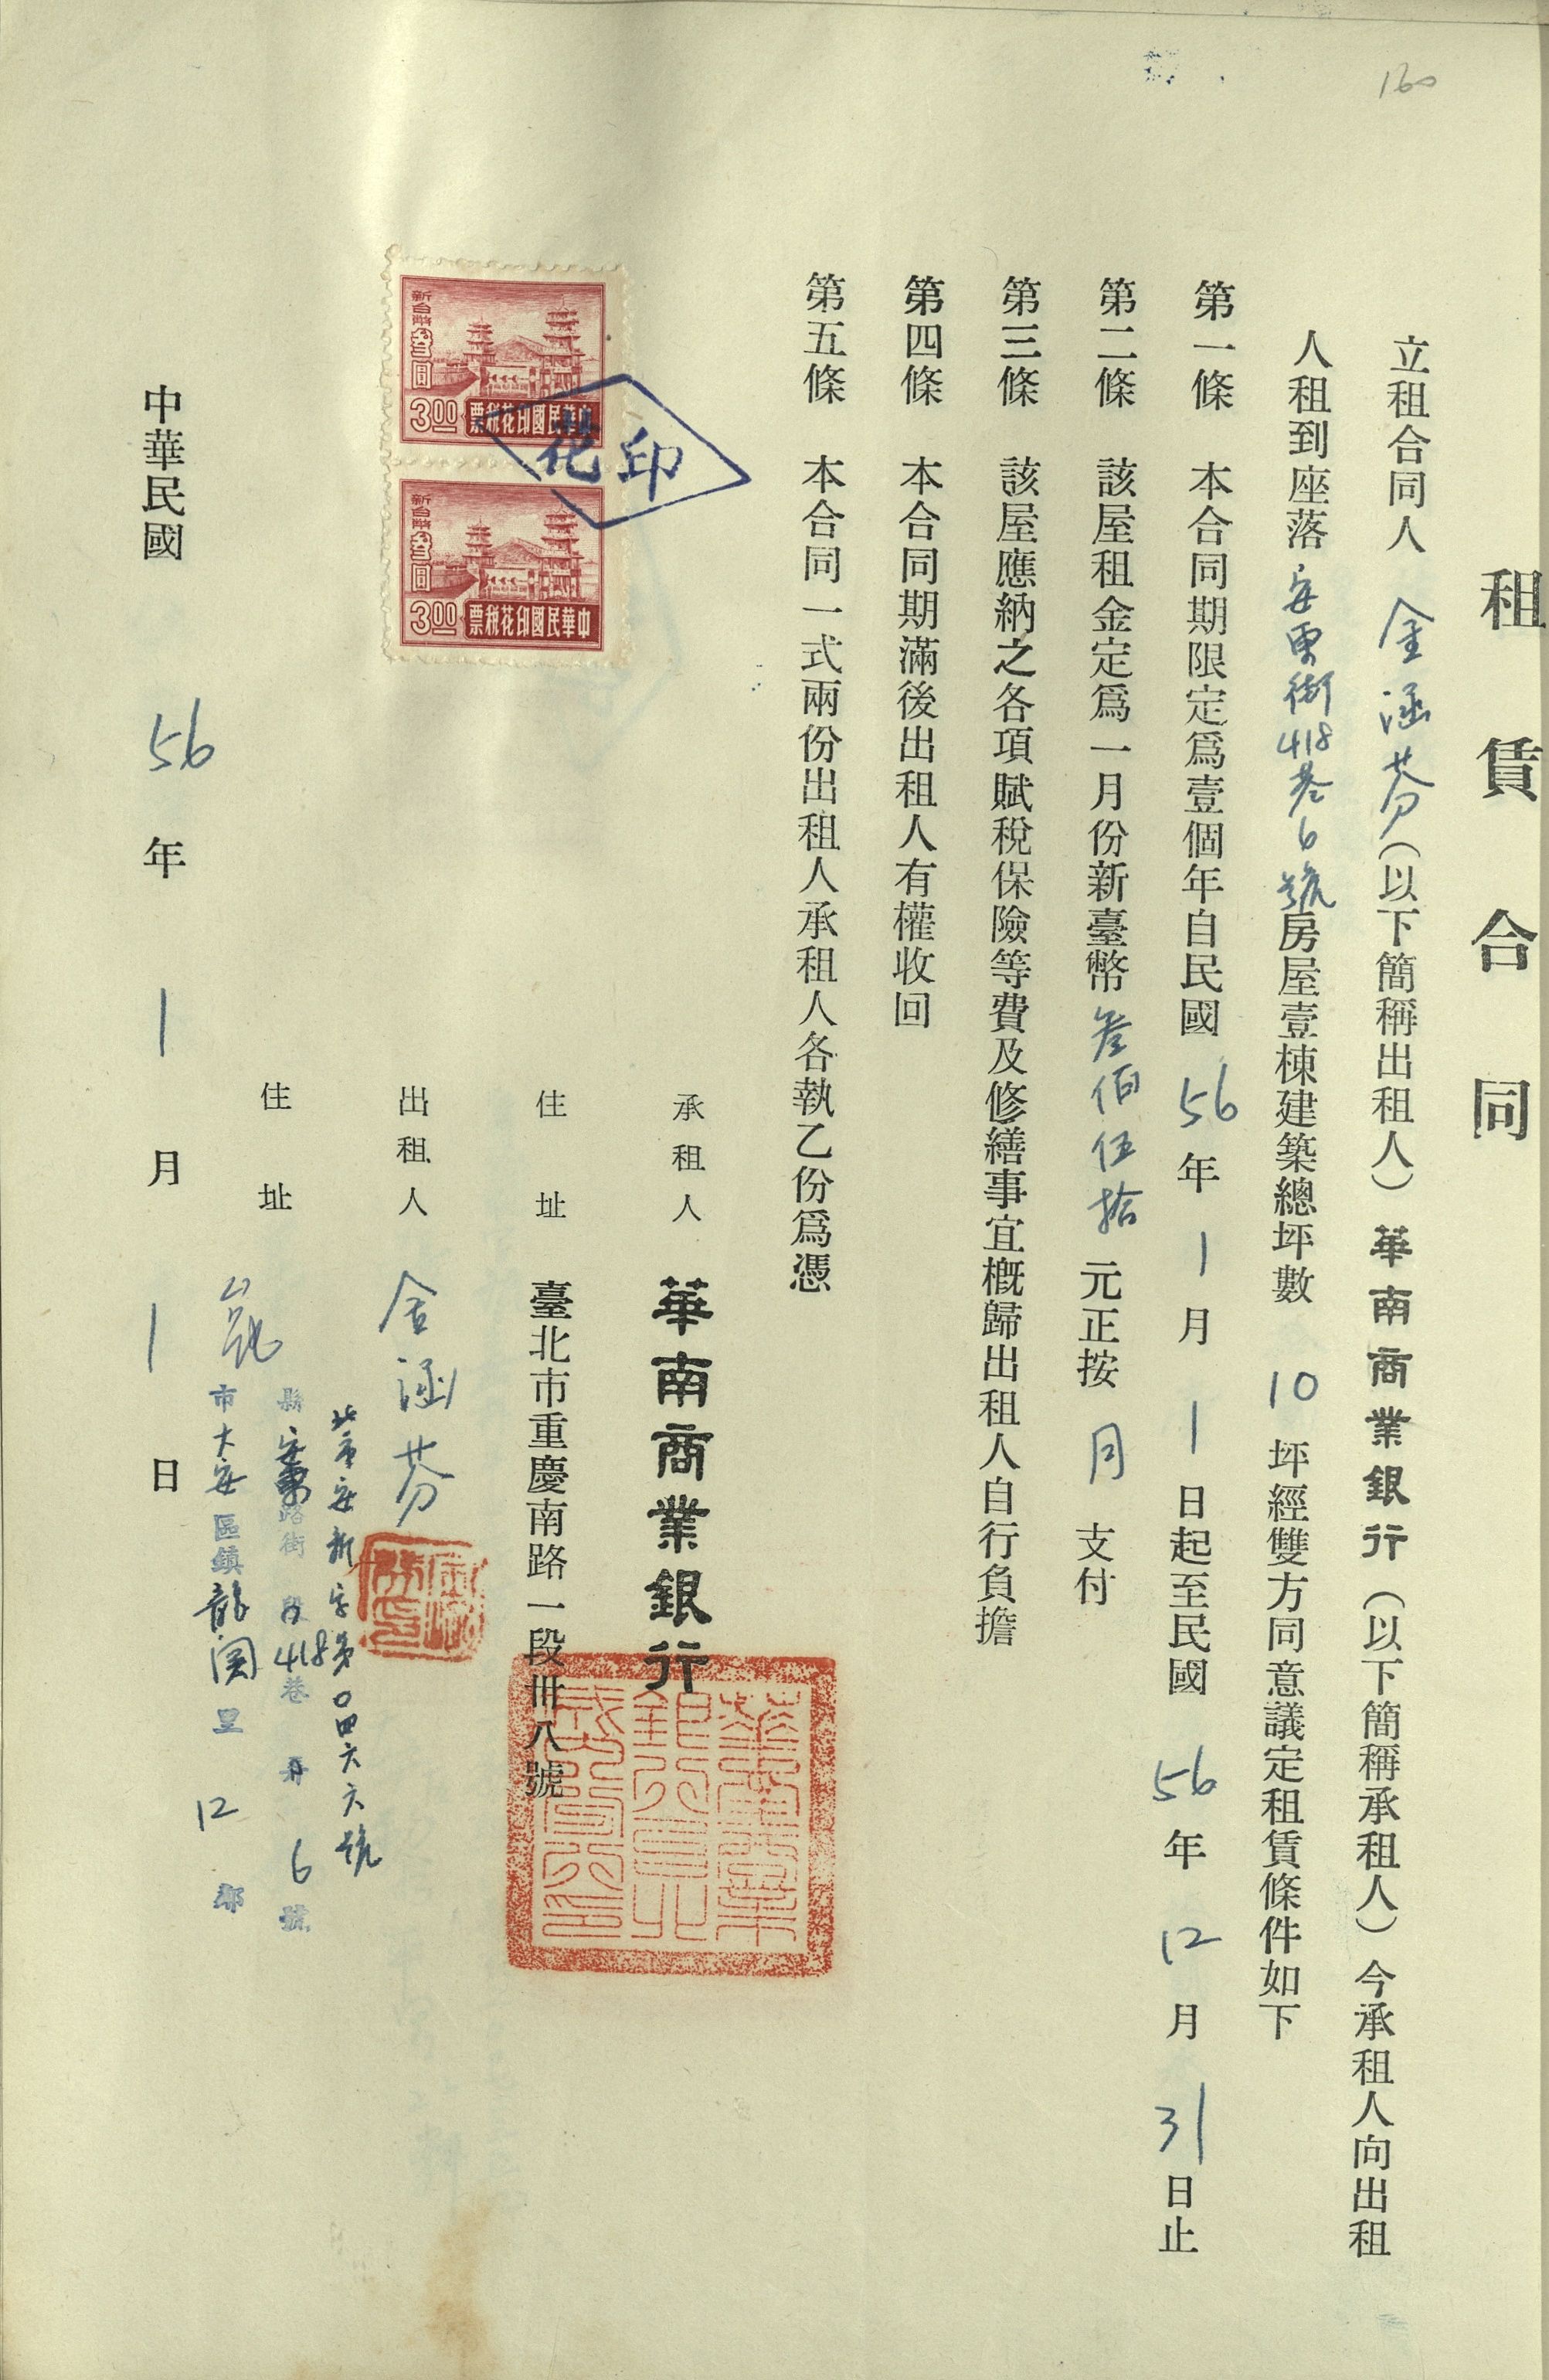 160
租賃合同
立租合同人 金涵芬(以下簡稱出租人)華南商業銀行(以下簡稱承租人)今承租人向出租
人租到座落安東街418巷6號房屋壹棟建築總坪數 10 坪經雙方同意議定租賃條件如下
第一條 本合同期限定爲壹個年自民國 56 年 1 月 1 日起至民國 56 年 12 月 31 日止
第二條 該屋租金定爲一月份新臺幣叁佰伍拾元正按 月 支付
第三條 該屋應納之各項賦稅保險等費及修繕事宜概歸出租人自行負擔
第四條 本合同期滿後出租人有權收回
第五條 本合同一式兩份出租人承租人各執乙份爲憑
新台幣叁圓
3.00
中華民國印花稅票
印花
新台幣叁圓
3.00
中華民國印花稅票
承租人 華南商業銀行
住址 臺北市重慶南路一段卅八號
出租人 金涵芬
北市安新字第0四六六號
住址
縣 安東路街 段 418巷 弄 6 號
市大安區鎮龍 里 12 鄰
中華民國 56 年 1 月 1 日